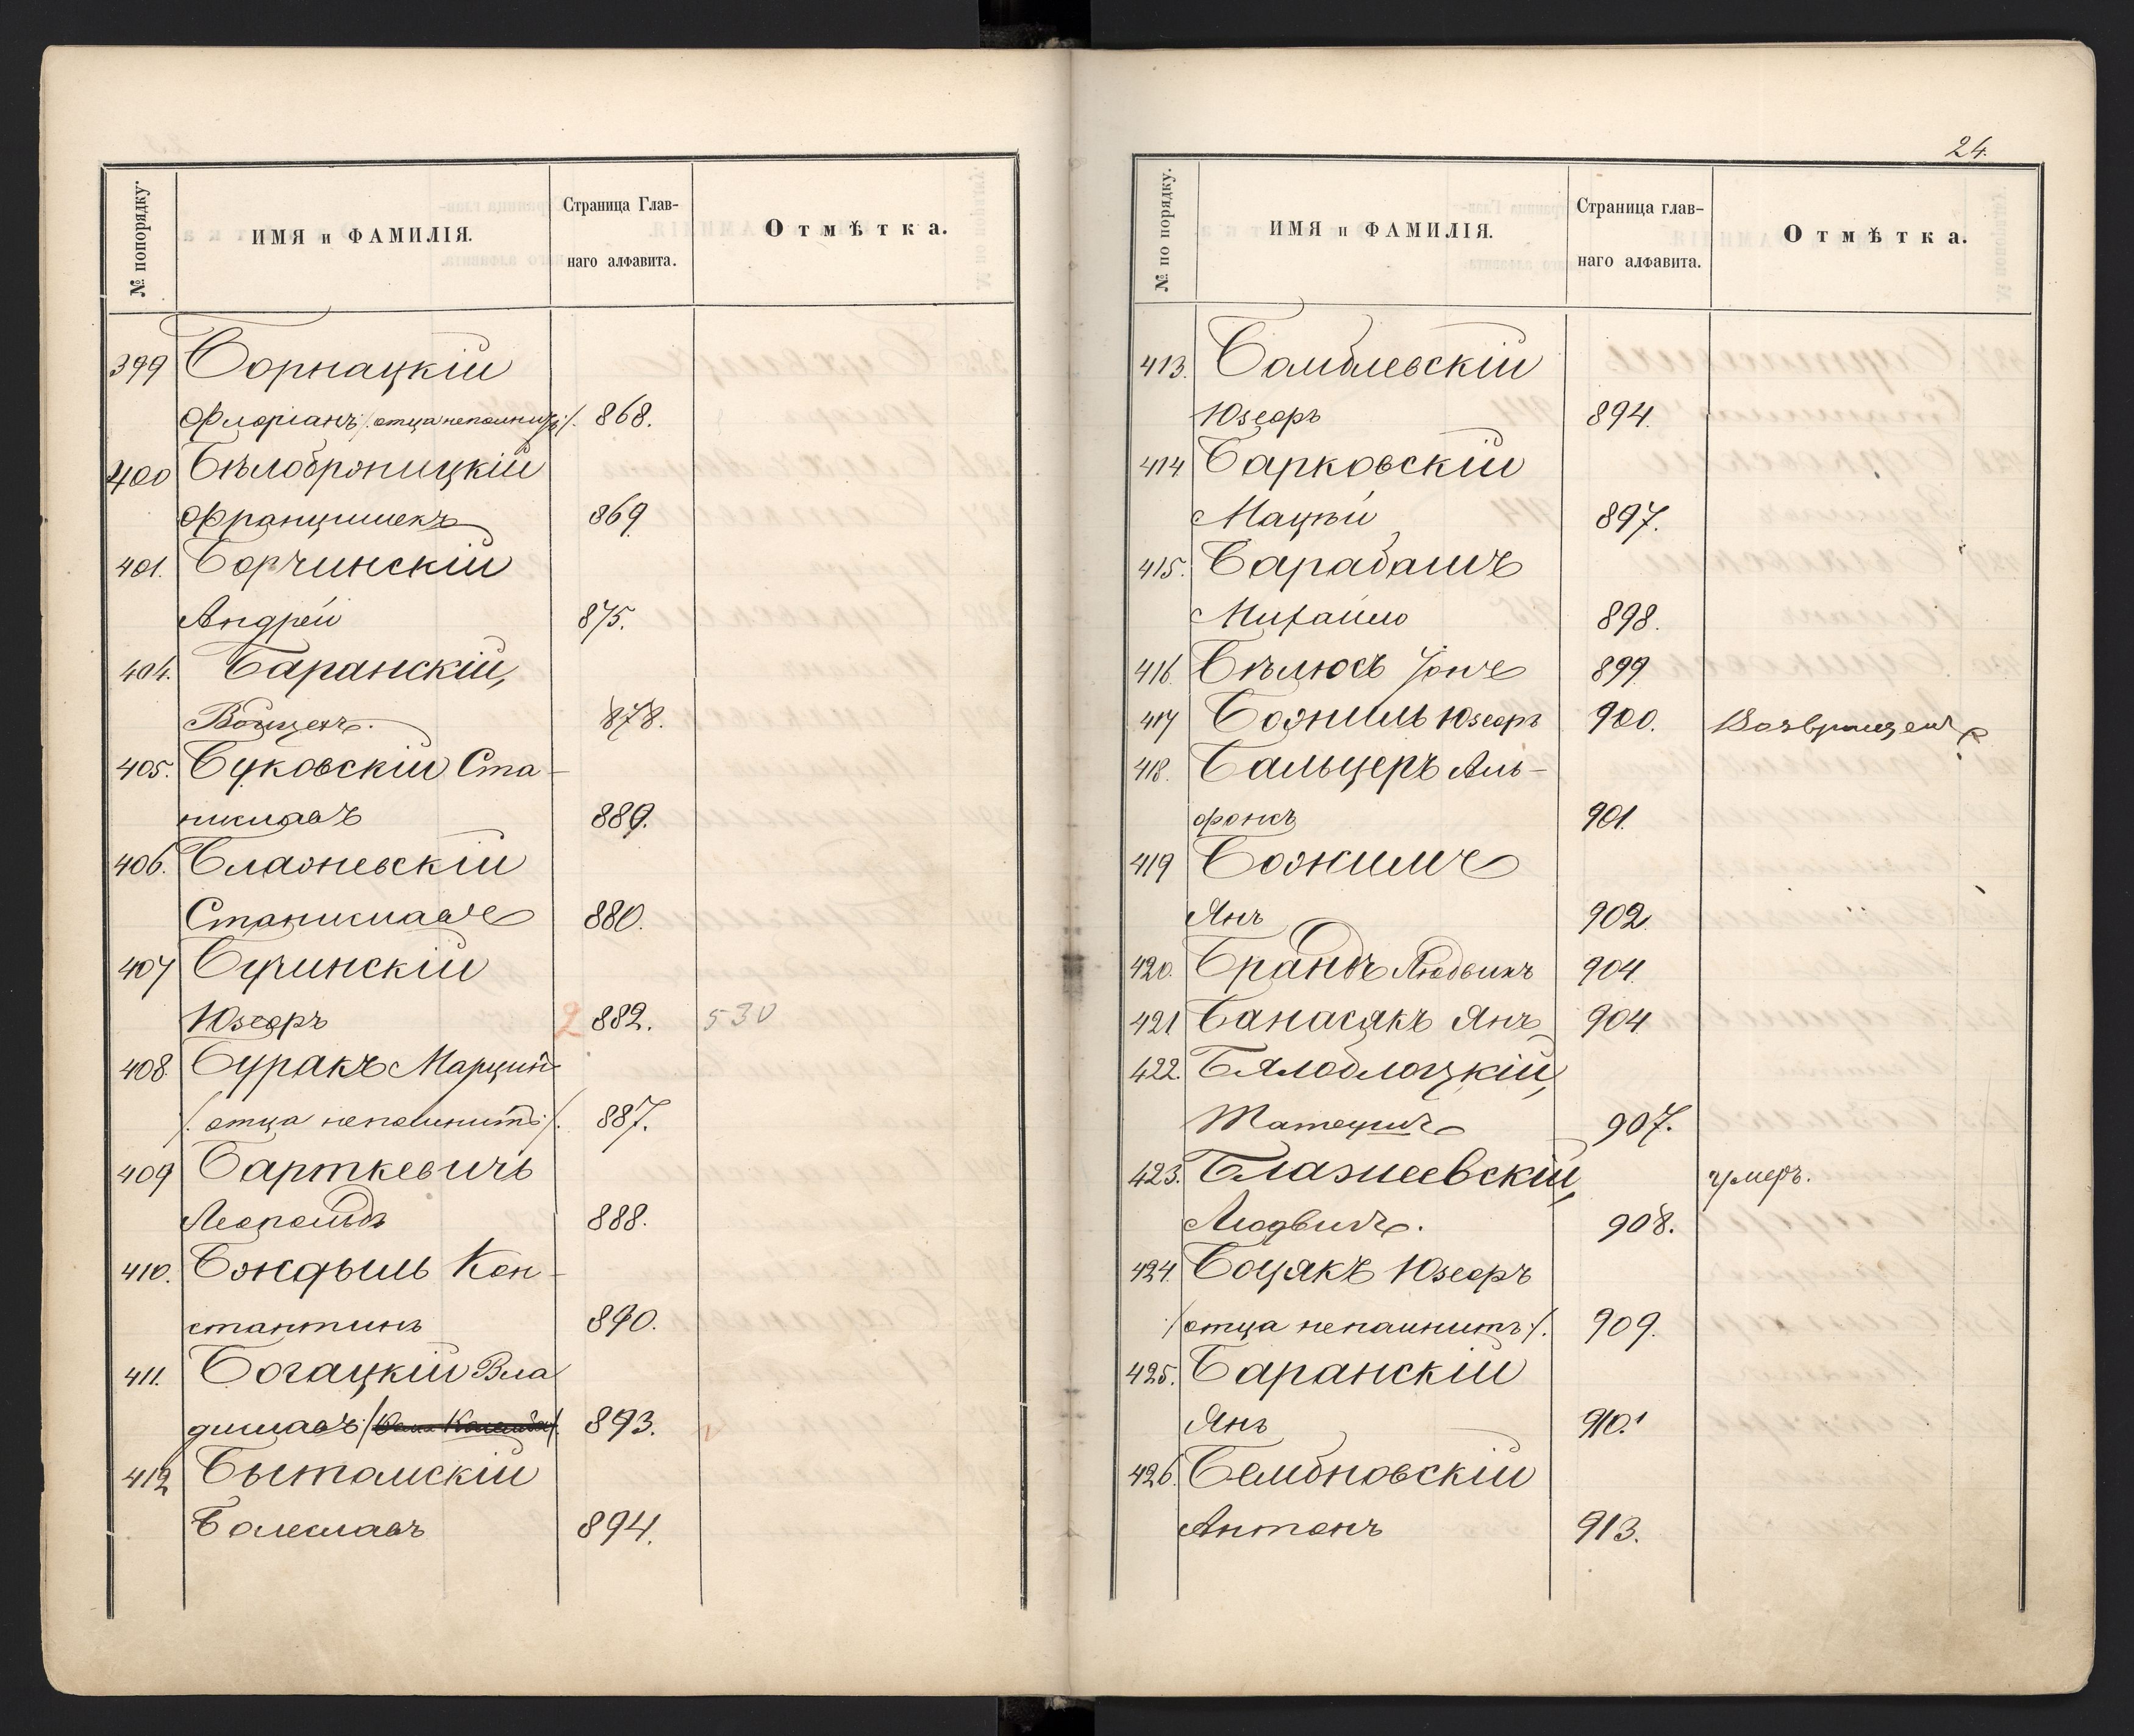 № попорядку.
ИМЯ и ФАМИЛІЯ.
Страница Глав-
наго алфавита.
Отмѣтка.
399 Борнацкій
Флоріанъ /. отца непомнитъ ./. 868.
400 Бѣлоброницкій
Францишекъ 869
401. Борчинскій
Андрей 875.
404. Баранскій,
Войцехъ. 878.
405. Буковскій Ста-
ниславъ 889.
406. Блажневскій
Станиславъ 880.
407 Бучинскій
Юзефъ 2 882. 530
408. Буракъ Марцинъ
/. отца непомнитъ ./. 887.
409 Барткевичъ
Леопольдъ 888.
410. Бождыль Кон-
стантинъ 890.
411. Богацкій Вла
диславъ 893.
412 Бытомскій
Болеславъ 894.
24.
№ по порядку.
ИМЯ и ФАМИЛІЯ.
Страница глав-
наго алфавита.
Отмѣтка.
413. Бомблевскій
Юзефъ 894.
414 Барковскій
Мацѣй 897.
415. Барабашъ
Михайло 898.
416. Бѣлюсъ 899
417 Божимъ Юзефъ 900. Возвращенъ
418. Бальцеръ Аль-
фонсъ 901.
419 Божимъ
Янъ 902.
420. Брандъ Людвикъ 904.
421 Банасякъ Янъ 904
422. Бялоблоцкій,
Матеушъ 907.
423. Блазиевскій, умеръ.
Людвигъ. 908.
424. Боцякъ Юзефъ
/отца непомнитъ ./. 909.
425. Баранскій
Янъ 910.
426. Бембновскій
Антонъ 913.